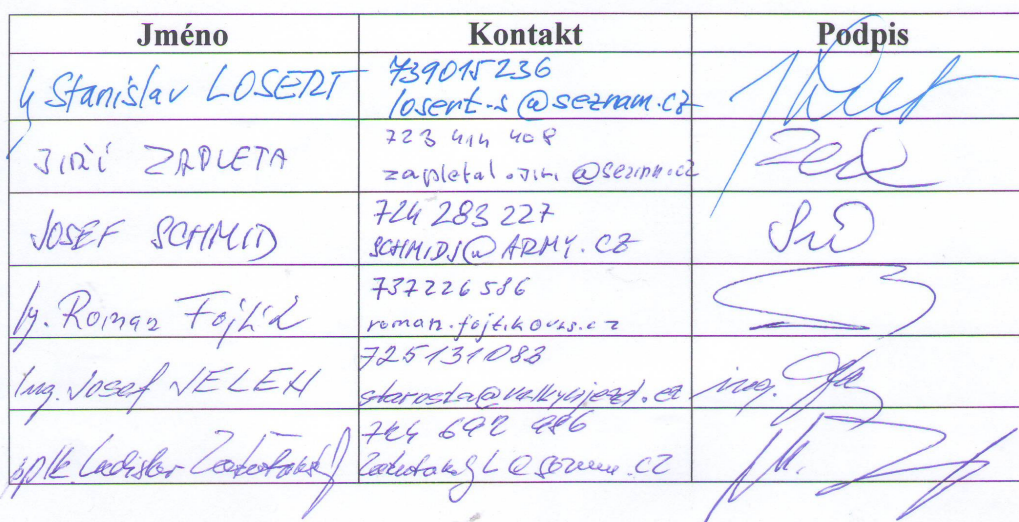 Jméno Kontakt Podpis
Stanislav LOSERT 739015236
losert-s@seznam.cz
JIŘÍ ZAPLETA 723 414 408
zapletal.jiri@seznam.cz
JOSEF SCHMID 724 283 227
SCHMIDJ@ARMY.CZ
Ing. Roman Fojtík 737226586
roman.fojtik@vrs.cz
Ing. Josef JELEN 725131083
starosta@velkyujezd.cz ing.
pplk. Ladislav 724 692 986